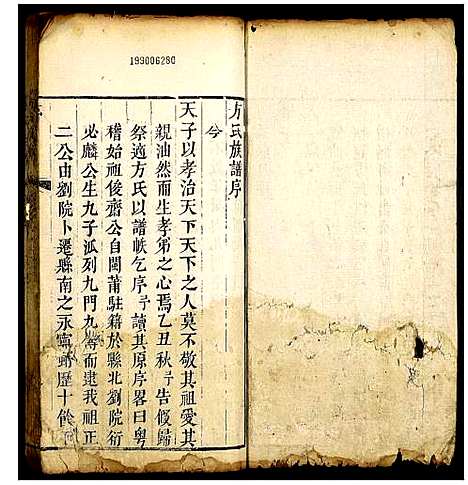 199006280
方氏族譜序
今
天子以孝治天下天下之人莫不敬其祖愛其
親油然而生孝弟之心焉乙丑秋予告假歸
祭適方氏以譜帙乞序予讀其原序畧曰粵
稽始祖俊齋公自閩莆駐籍於縣北劉院衍
必麟公生九子派列九門九傳而逮我祖正
二公由劉院卜遷縣南之永寧歷十餘